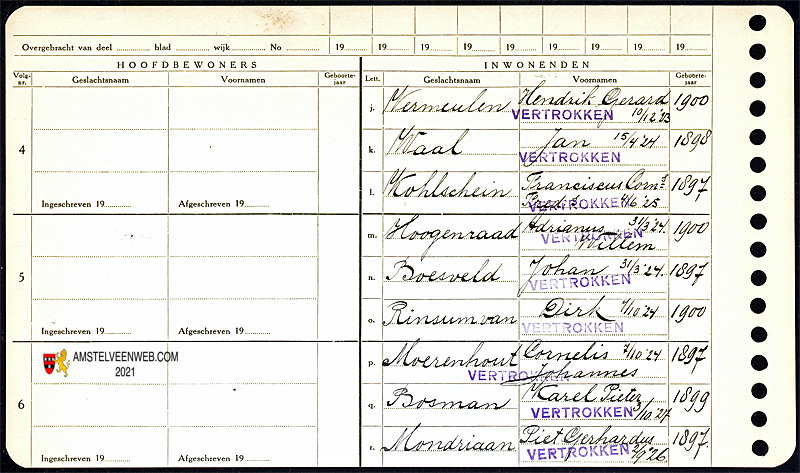 Overgebracht van deel ........ blad ........ wijk ........ No ........ 19.... 19.... 19.... 19.... 19.... 19.... 19.... 19.... 19....
HOOFDBEWONERS INWONENDEN
Volgnr. Geslachtsnaam Voornamen Geboortejaar Lett. Geslachtsnaam Voornamen Geboortejaar
j. Vermeulen Hendrik Gerard 1900
VERTROKKEN 10/12 '23
4 k. Waal Jan 15/4 '24 1898
VERTROKKEN
l. Kohlschein Franciscus Corns 1897
Ingeschreven 19........ Afgeschreven 19........ VERTROKKEN /6 '25
m. Hoogenraad Adrianus 31/3 '24. 1900
VERTROKKEN Willem
5 n. Boesveld Johan 31/3 '24. 1897
VERTROKKEN
o. Rinsum van Dirk 7/10 '24 1900
Ingeschreven 19........ Afgeschreven 19........ VERTROKKEN
AMSTELVEENWEB.COM
2021
p. Moerenhout Cornelis 7/10 '24 1897
VERTROKKEN Johannes
6 q. Bosman Karel Pieter 1899
VERTROKKEN /10 '27
r. Mondriaan Piet Gerhardus 1897.
Ingeschreven 19........ Afgeschreven 19........ VERTROKKEN /9 '26.